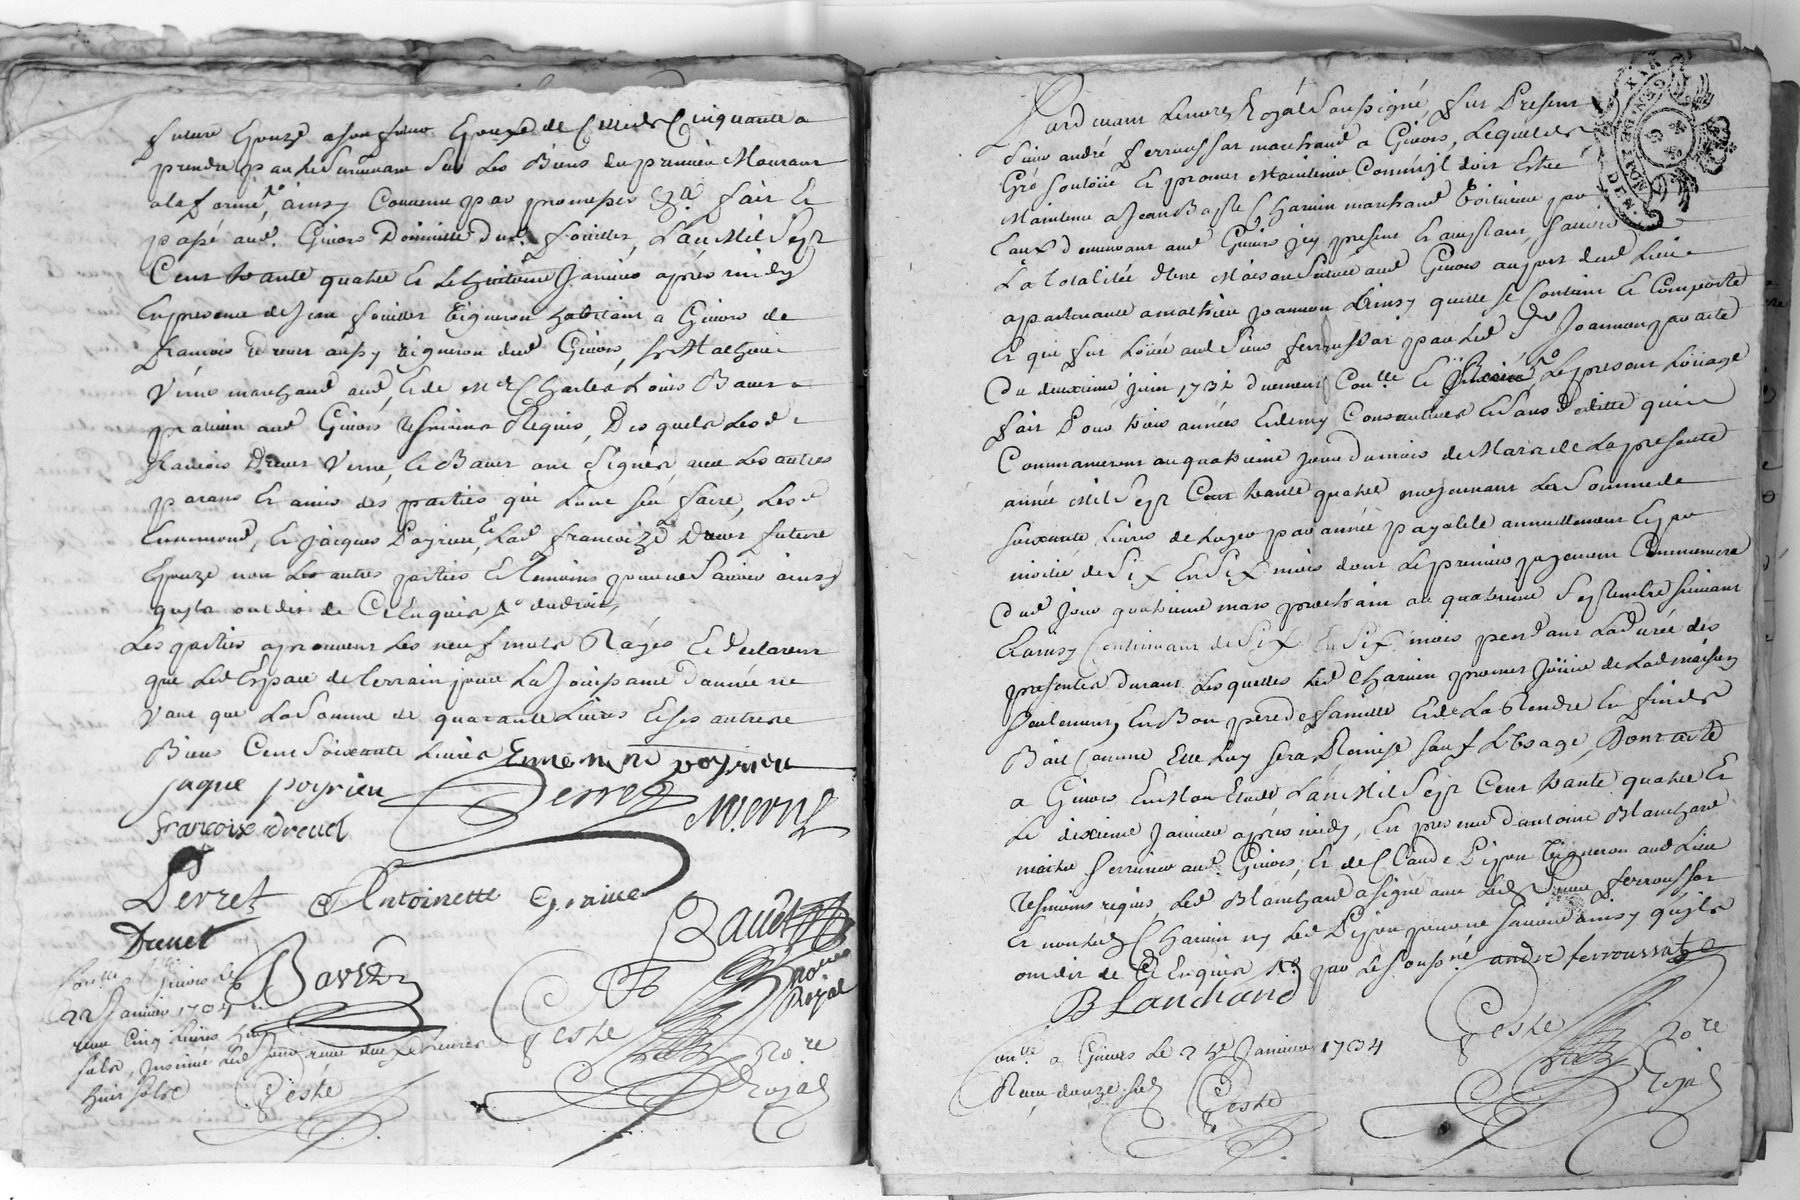 future Epouze a son futur Epoux de Cinquante a
prendre par le survivant sur Les Biens du premier Mourant
a la forme, ainsy Convenu par promesse fait Et
passé aud. Givors Domicille dud. fouiller, L'an Mil Sept
Cent trante quatre Et Le huitieme Janvier après midy
En presence de Jean fouiller Vigneron habitant a Givors de
francois Drevet aussy vigneron dud Givors, Sr Mathieu
Verne marchand aud, Et de Mre Charles Louis Bavet
praticien aud Givors tesmoins Requis, Desquels Led
francois Drevet Verne, Et Bavet ont signés avec Les autres
parans Et amis des parties qui L'ont sçu faire, Led
Ennemond, Et Jacques Poyrieu, Et Lad francoize Drevet future
Epouze non Les autres parties Et temoins pour ne sçavoir ainsy
qu'ils ont dit de Ce Enquis
Les parties aprouvent Les neuf mots Rayés Et declarent
que Led Espace de terrain pour La Jouissance d'année ne
Vaut que La Somme de quarante Livres Et Ses autres
Biens Cent Soixante Livres Ennemond poyrieu
jaque poyrieu Perret M. Verne
françoise Drevet
Perret Antoinette
Drevet Bavet
Givors Le
22 Janvier 1734
reçu Cinq Livres huit
sols, Insinué Led Jour reçu
huit sols Geste
Geste Nore Royal
Pardevant Le nore Royal Soussigné fut Present
Sieur andré ferroussat marchand a Givors, Lequel de
Gré Soutoüe Et promet Maintenir Comm'il doit Estre
Maintenu a Jean Bapte Charvin marchand Voiturier par
Eaux demeurant aud Givors jcy present Et acceptant, Sçavoir
La totalitée d'une Maison Scituée aud Givors au port dud Lieu
appartenante a mathieu joannon Ainsy quelle Se Contient Et Comporte
Et qui fut Loüée aud Sieur ferroussat par Led Sr Joannon par acte
Du deuxieme juin 1732 duement Conllé Et Le present Loüage
fait Pour trois années Et demy Consecutives Et Sans deditte qui
Commanceront au quatrieme jour du mois de Mars de La presente
année Mil Sept Cent trante quatre moyennant La Somme de
soixante Livres de Loyer par année payable annuellement Et par
moitié de Six En Six mois dont Le premier payement Commencera
Dud Jour quatrieme mars prochain au quatrieme Septembre suivant
Et ainsy Continuant de Six En Six mois pendant La Durée des
presentes durant Lesquelles Led Charvin promet Joüir de Lad maison
seulement En Bon pere de famille Et de La Rendre En fin de
Bail Comme Elle Luy sera Remise sauf L'Usage, Dont acte
a Givors En Mon Etude L'an Mil Sept Cent trante quatre Et
Le dixieme Janvier après midy, En presence d'antoine Blanchard
maitre serrurier aud Givors, Et de Claude Pijon Vigneron aud Lieu
tesmoins requis, Led Blanchard a signé avec Led Sieur ferroussat
Et non Led Charvin ny Led Pijon pour ne sçavoir ainsy qu'ils
ont dit de Ce Enquis par Le Soussné andre ferroussat
Blanchard
Geste Nore Royal
Conllé a Givors Le 24e Janvier 1734
Reçu douze sols Geste